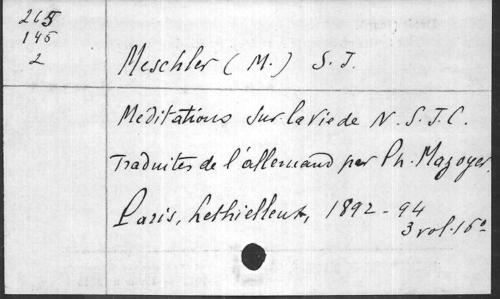 265
145
2
Meschler (M.) S. J.
Meditations sur la vie de N. S. J. C.
Traduites de l'allemand par Ph. Mazoyer.
Paris, Lethielleux, 1892-94
3 vol. 16°